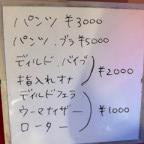 パンツ ¥3000
パンツ.ブラ ¥5000
ディルド.バイブ
指入れオナ
¥2000
ディルドフェラ
ウーマナイザー
ローター
¥1000